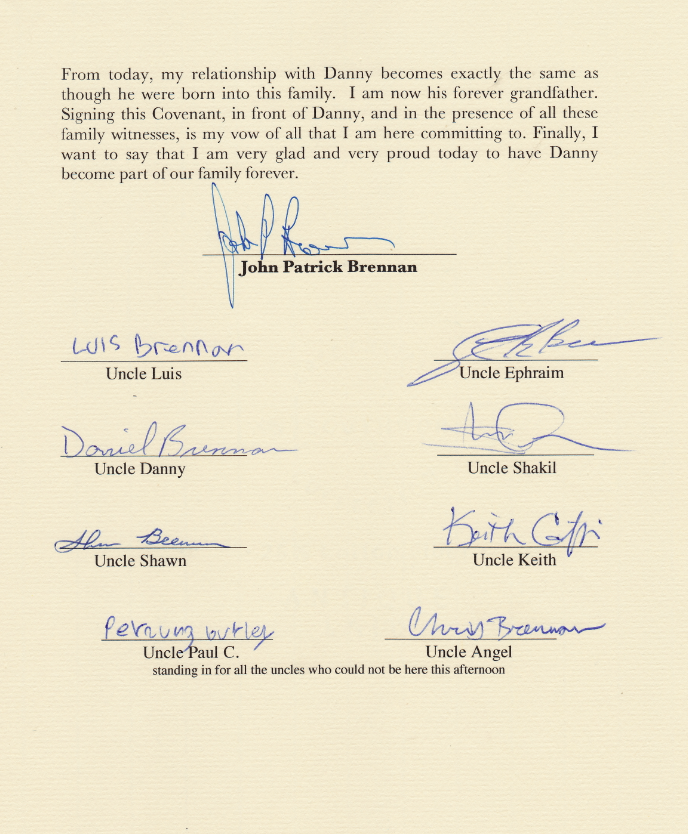 From today, my relationship with Danny becomes exactly the same as
though he were born into this family. I am now his forever grandfather.
Signing this Covenant, in front of Danny, and in the presence of all these
family witnesses, is my vow of all that I am here committing to. Finally, I
want to say that I am very glad and very proud today to have Danny
become part of our family forever.
John Patrick Brennan
Luis Brennan
Uncle Luis Uncle Ephraim
Daniel Brennan
Uncle Danny Uncle Shakil
Shawn Brennan Keith
Uncle Shawn Uncle Keith
Chris Brennan
Uncle Paul C. Uncle Angel
standing in for all the uncles who could not be here this afternoon